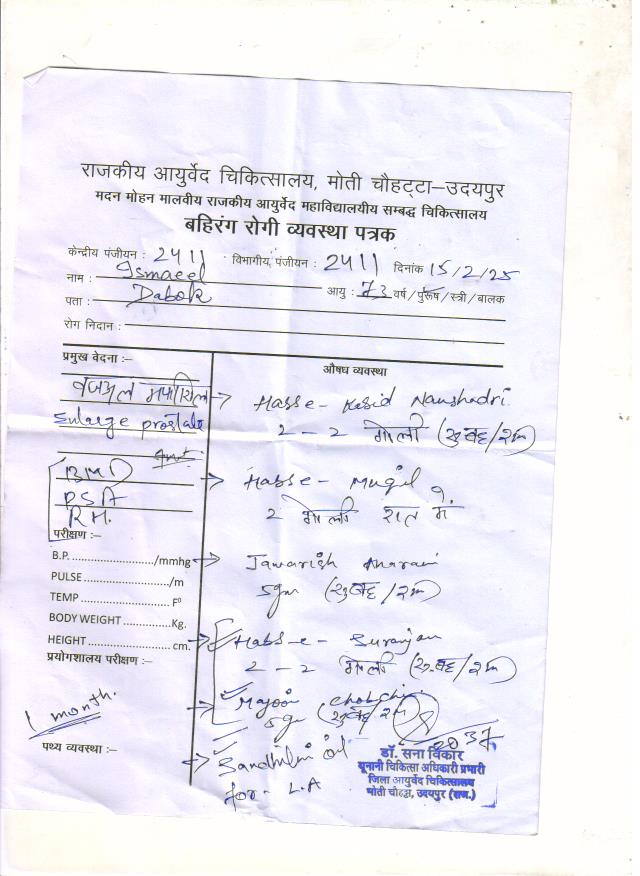 राजकीय आयुर्वेद चिकित्सालय, मोती चौहट्टा–उदयपुर
मदन मोहन मालवीय राजकीय आयुर्वेद महाविद्यालयीय सम्बद्ध चिकित्सालय
बहिरंग रोगी व्यवस्था पत्रक
केन्द्रीय पंजीयन : 2411 विभागीय, पंजीयन : 2411 दिनांक 15/2/25
नाम : Ismaeel आयु : 73 वर्ष/पुरूष/स्त्री/बालक
पता : Dabok
रोग निदान :
प्रमुख वेदना :–
औषध व्यवस्था
वजउल मफासिल
Habb-e- Kabid Naushadri
Enlarge prostate
2 - 2 गोली (सुबह/शाम)
BMD
Habb-e- Muqil
PSA
2 गोली रात में
RH.
परीक्षण :–
B.P. /mmhg
Jawarish Anarain
PULSE /m
5gm (सुबह/शाम)
TEMP F⁰
BODY WEIGHT Kg.
HEIGHT cm.
Habb-e- Suranjan
प्रयोगशालय परीक्षण :–
2 - 2 गोली (सुबह/शाम)
1 month.
Majoon Chobchini
5gm (सुबह/शाम)
पथ्य व्यवस्था :–
Sandhileen oil
for - L.A
डॉ. सना विकार
यूनानी चिकित्सा अधिकारी प्रभारी
जिला आयुर्वेद चिकित्सालय
मोती चौहट्टा, उदयपुर (राज.)